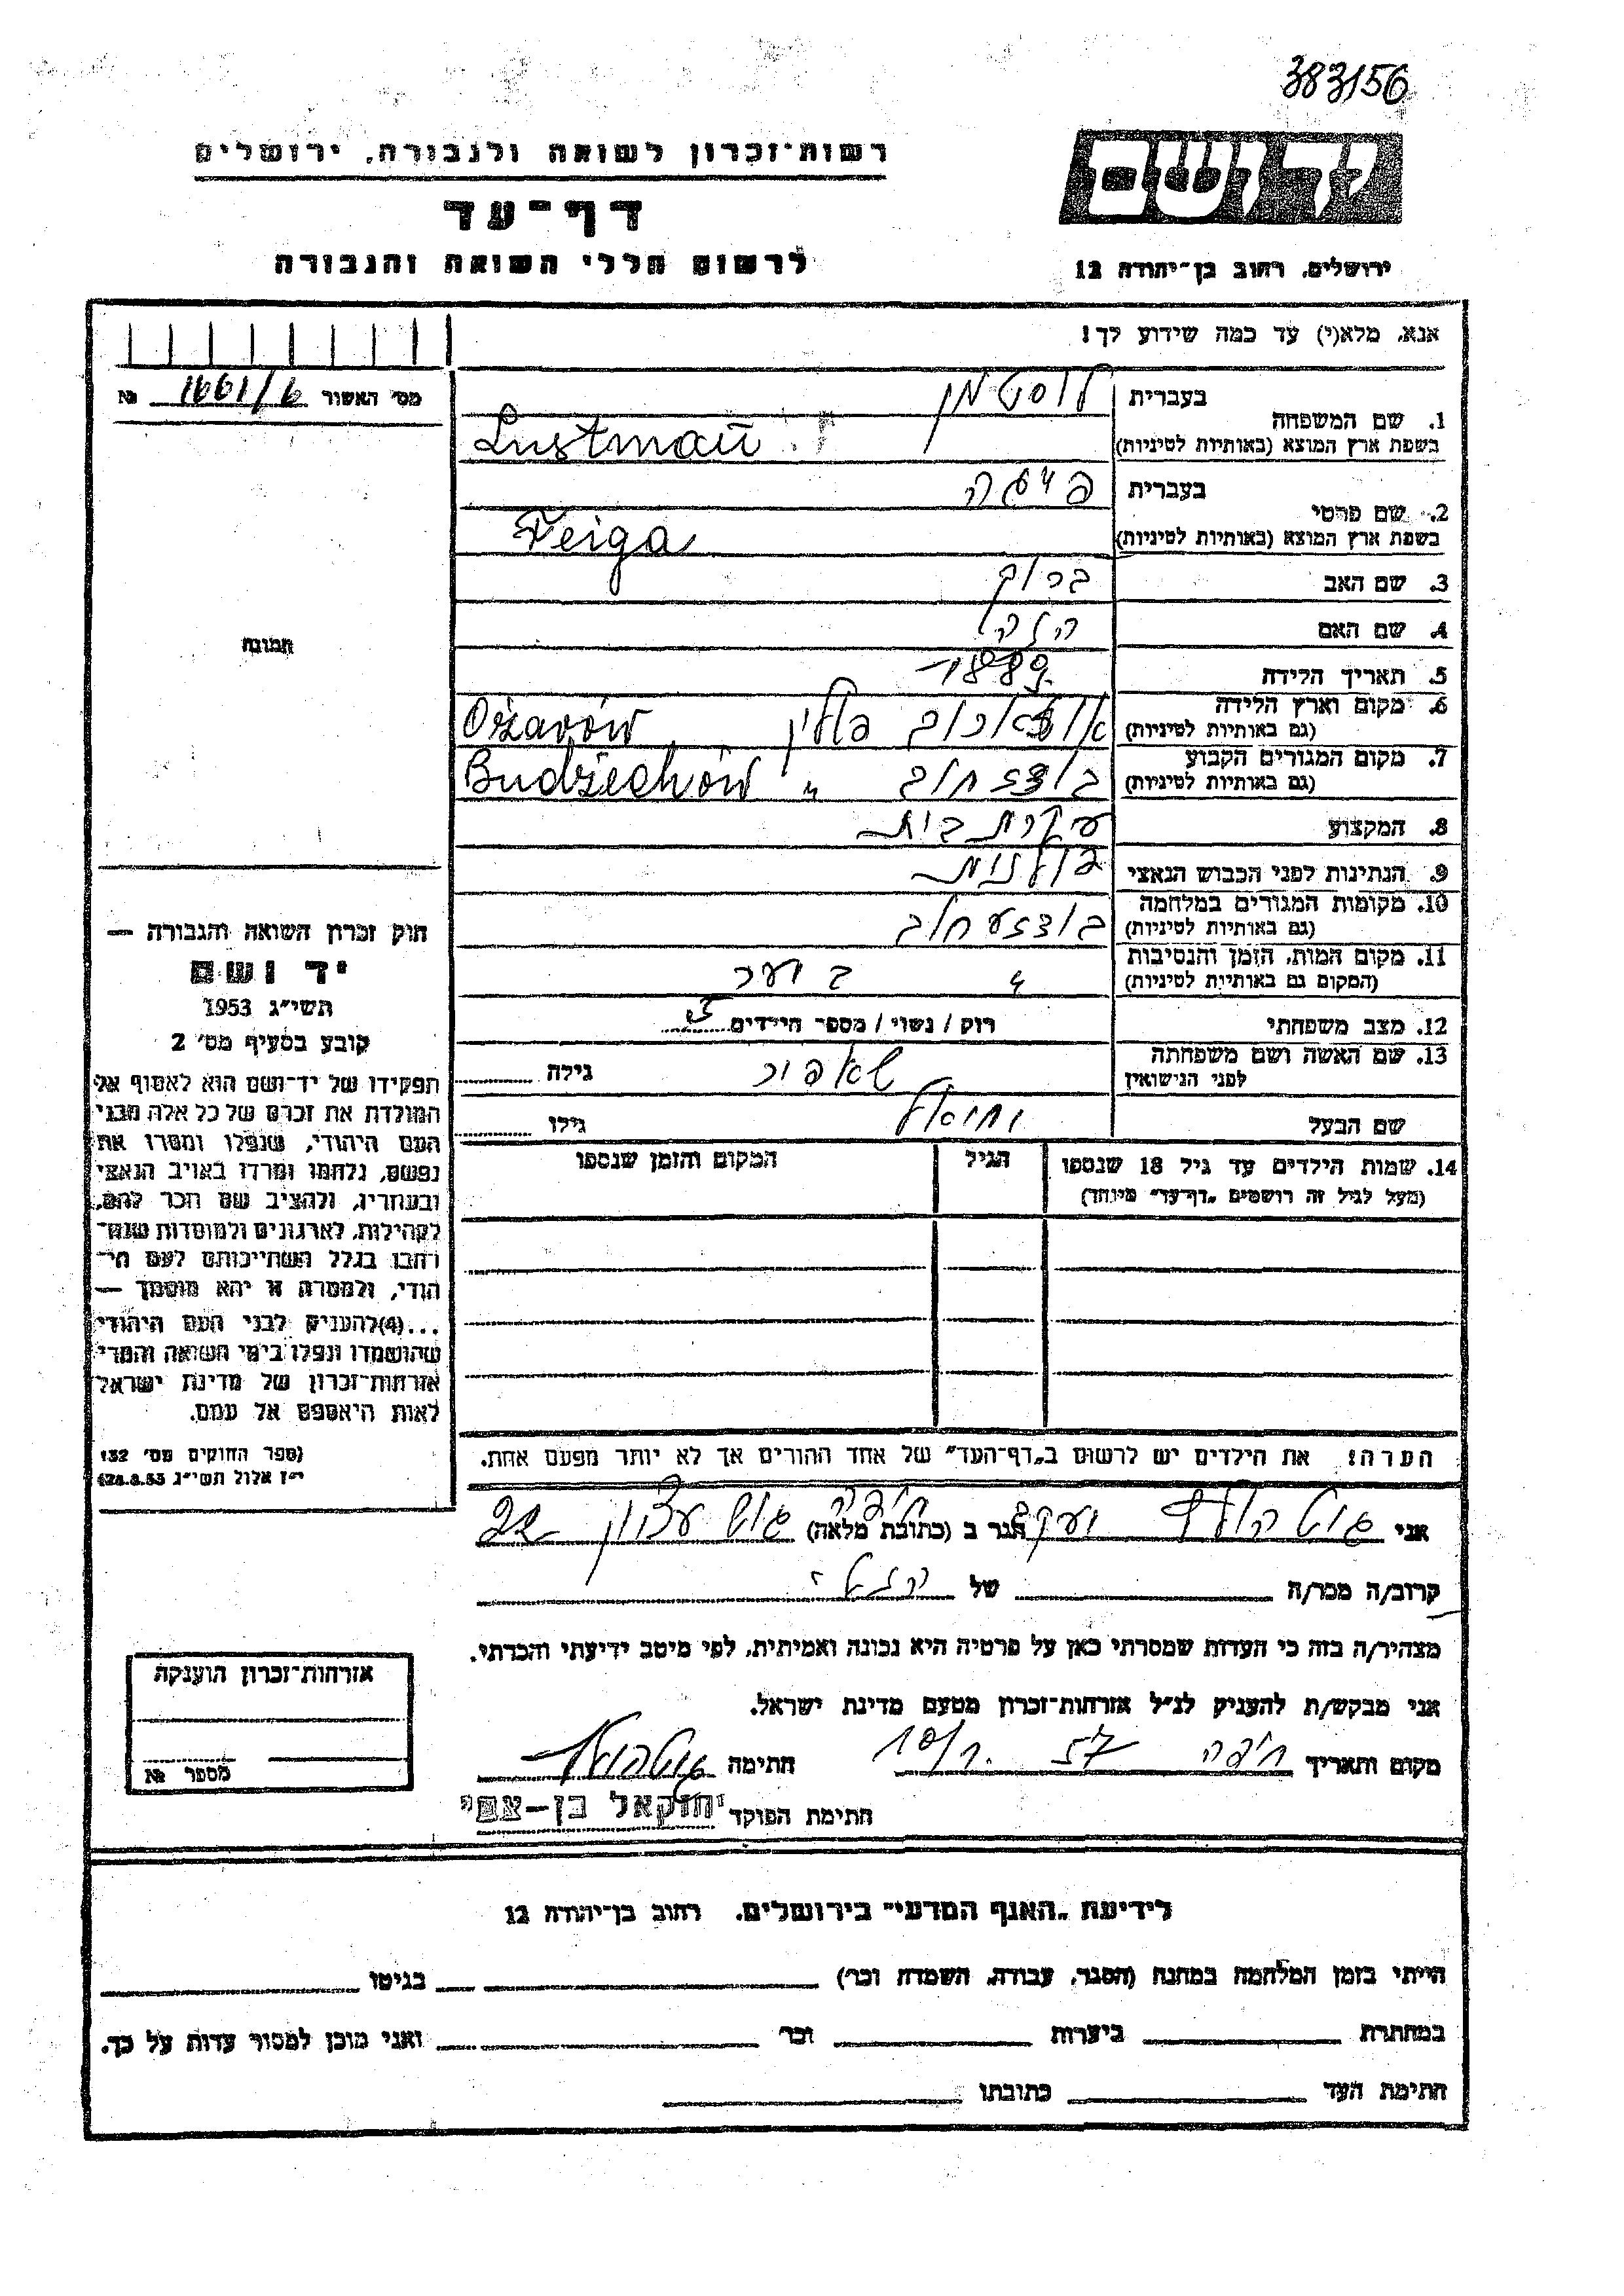 383156
יד ושם
רשות־זכרון לשואה ולגבורה, ירושלים
דף־עד
לרשום חללי השואה והגבורה
ירושלים, רחוב בן־יהודה 12
אנא, מלא(י) עד כמה שידוע לך!
מס׳ האשור № 1661/6
1. שם המשפחה
בעברית לוסטמן
בשפת ארץ המוצא (באותיות לטיניות) Lustman
2. שם פרטי
בעברית פייגה
בשפת ארץ המוצא (באותיות לטיניות) Feiga
3. שם האב ברוך
4. שם האם
5. תאריך הלידה 1889
6. מקום וארץ הלידה פולין Ożarów
(גם באותיות לטיניות)
7. מקום המגורים הקבוע " Budziechów
(גם באותיות לטיניות)
8. המקצוע עקרת בית
9. הנתינות לפני הכבוש הנאצי פולנית
10. מקומות המגורים במלחמה
(גם באותיות לטיניות)
11. מקום המות, הזמן והנסיבות
(המקום גם באותיות לטיניות)
12. מצב משפחתי רוק / נשוי / מספר הילדים
13. שם האשה ושם משפחתה שאפיר גילה
לפני הנישואין
שם הבעל יחיאל גילו
14. שמות הילדים עד גיל 18 שנספו הגיל המקום והזמן שנספו
(מעל לגיל זה רושמים „דף־עד״ מיוחד)
הערה: את הילדים יש לרשום ב„דף־העד״ של אחד ההורים אך לא יותר מפעם אחת.
תמונה
חוק זכרון השואה והגבורה —
יד ושם
תשי״ג 1953
קובע בסעיף מס׳ 2
תפקידו של יד־ושם הוא לאסוף אל
המולדת את זכרם של כל אלה מבני
העם היהודי, שנפלו ומסרו את
נפשם, נלחמו ומרדו באויב הנאצי
ובעוזריו, ולהציב שם וזכר להם,
לקהילות, לארגונים ולמוסדות שנח־
רבו בגלל השתייכותם לעם הי־
הודי, ולמטרה זו יהא מוסמך —
...(4)להעניק לבני העם היהודי
שהושמדו ונפלו בימי השואה והמרי
אזרחות־זכרון של מדינת ישראל
לאות היאספם אל עמם.
(ספר החוקים מס׳ 132
י״ז אלול תשי״ג 28.8.53)
אני גוטהולץ יעקב הגר ב (כתובת מלאה) חיפה 22
קרוב/ה מכר/ה של
מצהיר/ה בזה כי העדות שמסרתי כאן על פרטיה היא נכונה ואמיתית, לפי מיטב ידיעתי והכרתי.
אני מבקש/ת להעניק לנ״ל אזרחות־זכרון מטעם מדינת ישראל.
מקום ותאריך חיפה חתימה
חתימת הפוקד יחזקאל בן-צבי
אזרחות־זכרון הוענקה
מספר №
לידיעת „האגף המדעי״ בירושלים, רחוב בן־יהודה 12
הייתי בזמן המלחמה במחנה (הסגר, עבודה, השמדה וכר׳) בגיטו
במחתרת ביערות וכר ואני מוכן למסור עדות על כך.
חתימת העד כתובתו